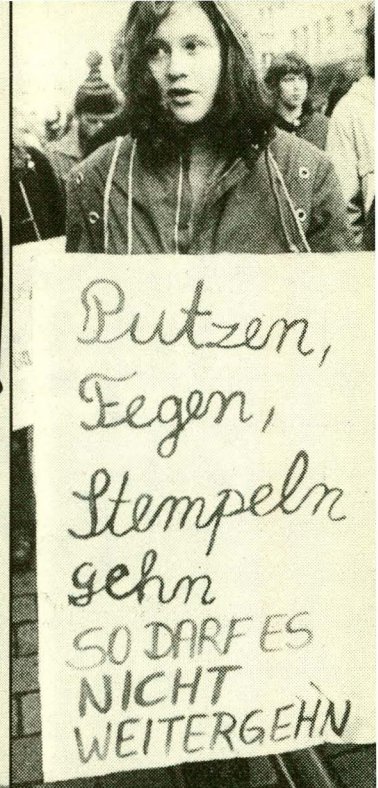 Putzen,
Fegen,
Stempeln
gehn
SO DARF ES
NICHT
WEITERGEHN